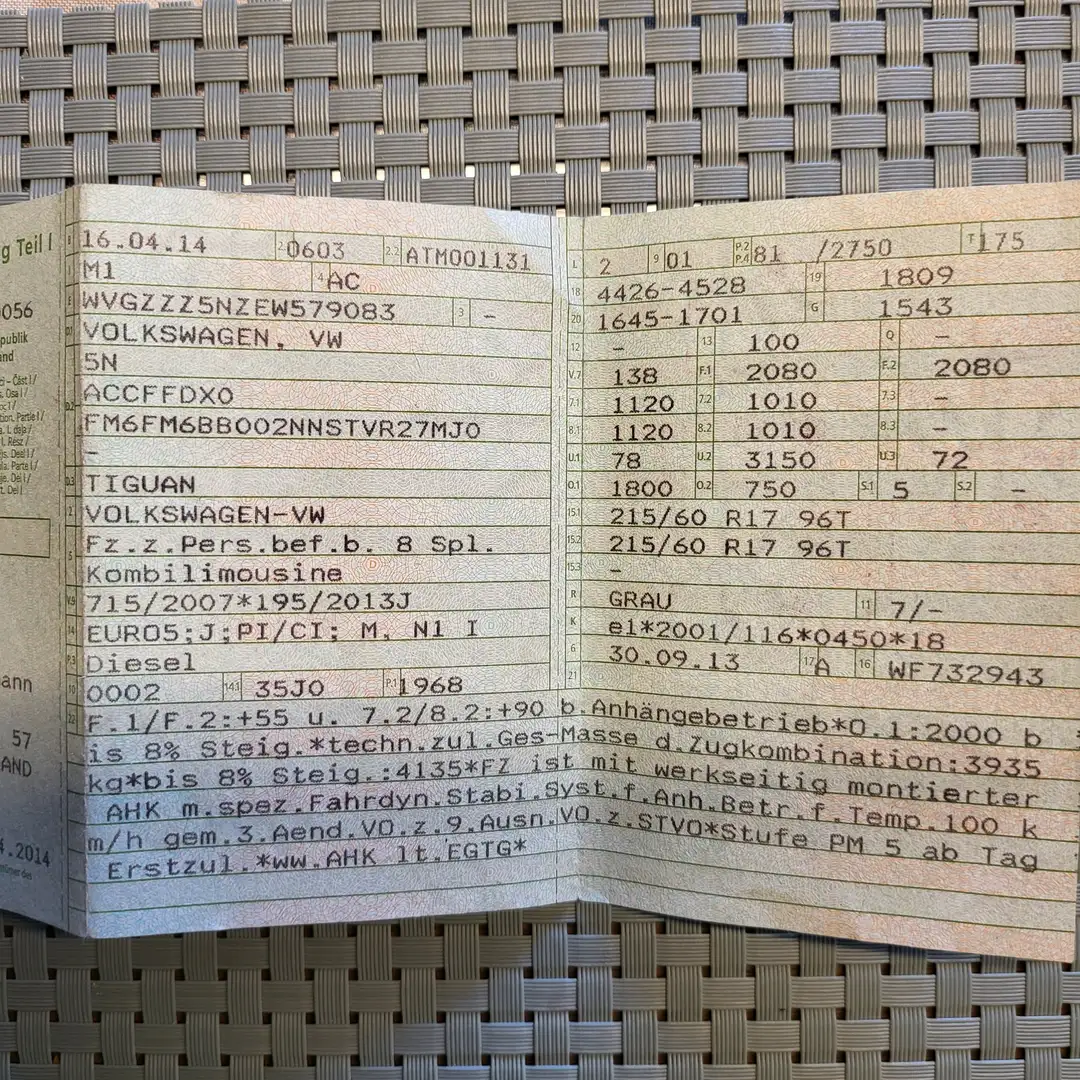 g Teil I
0056
publik
and
57
AND
4.2014
B 16.04.14 2 0603 2.2 ATM001131
J M1 4 AC
E WVGZZZ5NZEW579083 3 -
D.1 VOLKSWAGEN, VW
5N
D.2 ACCFFDX0
FM6FM6BB002NNSTVR27MJ0
-
D.3 TIGUAN
2 VOLKSWAGEN-VW
5 Fz.z.Pers.bef.b. 8 Spl.
Kombilimousine
V.9 715/2007*195/2013J
14 EURO5;J;PI/CI; M, N1 I
P.3 Diesel
10 0002 14.1 35J0 P.1 1968
L 2 9 01 P.2 P.4 81 /2750 T 175
18 4426-4528 19 1809
20 1645-1701 G 1543
12 - 13 100 Q -
V.7 138 F.1 2080 F.2 2080
7.1 1120 7.2 1010 7.3 -
8.1 1120 8.2 1010 8.3 -
U.1 78 U.2 3150 U.3 72
O.1 1800 O.2 750 S.1 5 S.2 -
15.1 215/60 R17 96T
15.2 215/60 R17 96T
15.3 -
R GRAU 11 7/-
K e1*2001/116*0450*18
6 30.09.13 17 A 16 WF732943
21
22 F.1/F.2:+55 u. 7.2/8.2:+90 b.Anhängebetrieb*O.1:2000 b
is 8% Steig.*techn.zul.Ges-Masse d.Zugkombination:3935
kg*bis 8% Steig.:4135*FZ ist mit werkseitig montierter
AHK m.spez.Fahrdyn.Stabi.Syst.f.Anh.Betr.f.Temp.100 k
m/h gem.3.Aend.VO.z.9.Ausn.VO.z.STVO*Stufe PM 5 ab Tag
Erstzul.*ww.AHK lt.EGTG*